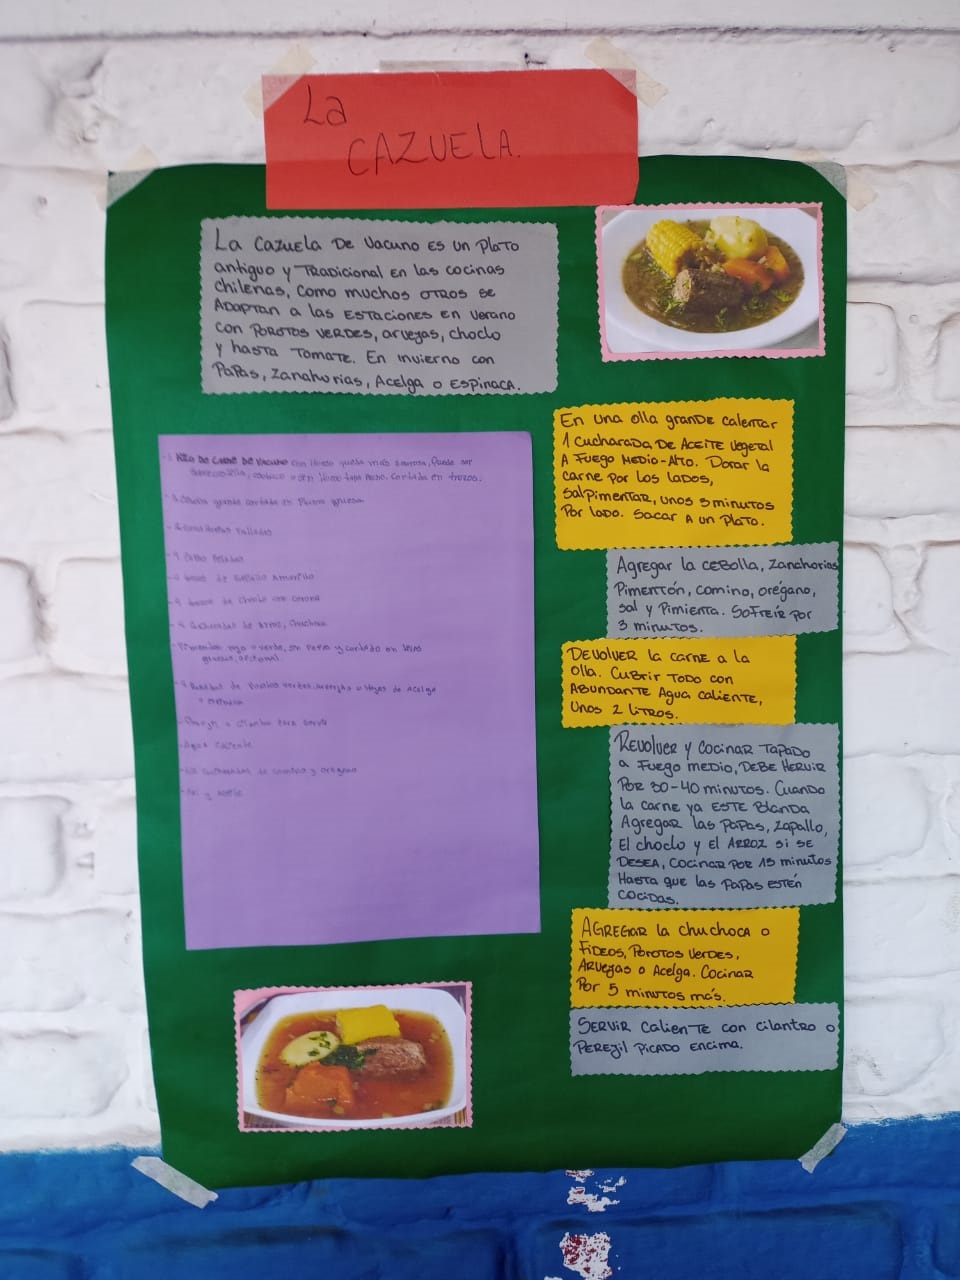 La
CAZUELA.
La Cazuela De Vacuno es un Plato
antiguo y Tradicional en las cocinas
chilenas, como muchos otros se
Adaptan a las Estaciones en verano
con Porotos verdes, arvejas, choclo
y hasta Tomate. En invierno con
Papas, Zanahorias, Acelga o Espinaca.
Kilo de Carne de Vacuno con Hueso queda más sabrosa, Puede ser
cortada en trozos.
grande cortada en Pluma gruesa
Zanahorias Ralladas
- 4 Papas Peladas
- 4 trozos de Zapallo Amarillo
- 4 trozos de choclo con corona
- 4 cucharadas de arroz, chuchoca
- Pimentón rojo o verde, sin Pepas y cortado en tiras
gruesas, opcional.
de Porotos verdes, arvejas u Hojas de Acelga
o espinaca
- Perejil o cilantro para servir
- Agua caliente
cucharadas de comino y orégano
- Sal y aceite
En una olla grande calentar
1 cucharada de Aceite vegetal
a Fuego Medio-Alto. Dorar la
carne por los lados,
salpimentar, unos 3 minutos
Por lado. Sacar a un Plato.
Agregar la cebolla, zanahorias
Pimentón, comino, orégano,
sal y Pimienta. Sofreír por
3 minutos.
Devolver la carne a la
olla. Cubrir todo con
Abundante Agua caliente,
Unos 2 litros.
Revolver y cocinar Tapado
a Fuego medio, Debe Hervir
Por 30-40 minutos. Cuando
la carne ya este Blanda
Agregar las Papas, zapallo,
El choclo y el Arroz si se
Desea, cocinar por 15 minutos
Hasta que las Papas estén
cocidas.
Agregar la chuchoca o
Fideos, Porotos Verdes,
Arvejas o Acelga. Cocinar
Por 5 minutos más.
Servir caliente con cilantro o
Perejil Picado encima.